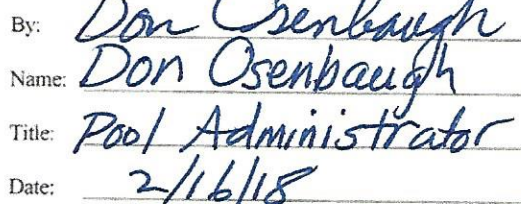 By: Don Osenbaugh
Name: Don Osenbaugh
Title: Pool Administrator
Date: 2/16/18